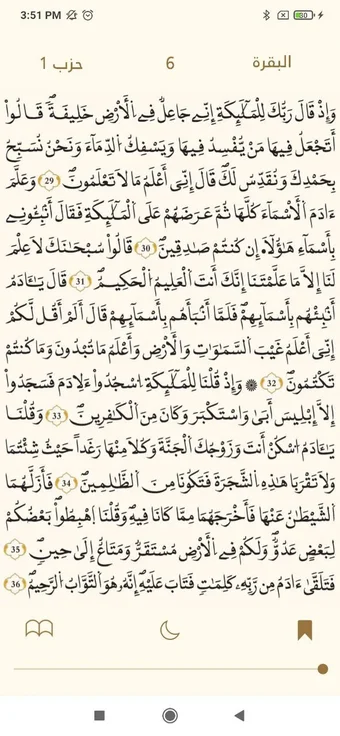 3:51 PM
60
البقرة
6
حزب 1
وَإِذْ قَالَ رَبُّكَ لِلْمَلَٰٓئِكَةِ إِنِّے جَاعِلٞ فِے اِلْأَرْضِ خَلِيفَةٗۖ قَالُوٓاْ
أَتَجْعَلُ فِيهَا مَنْ يُّفْسِدُ فِيهَا وَيَسْفِكُ اُلدِّمَآءَ وَنَحْنُ نُسَبِّحُ
بِحَمْدِكَ وَنُقَدِّسُ لَكَۖ قَالَ إِنِّيَ أَعْلَمُ مَا لَا تَعْلَمُونَۖ 29 وَعَلَّمَ
ءَادَمَ اَلْأَسْمَآءَ كُلَّهَا ثُمَّ عَرَضَهُمْ عَلَى اَلْمَلَٰٓئِكَةِ فَقَالَ أَنۢبِـُٔونِے
بِأَسْمَآءِ هَٰٓؤُلَآءِ ان كُنتُمْ صَٰدِقِينَۖ 30 قَالُواْ سُبْحَٰنَكَ لَا عِلْمَ
لَنَآ إِلَّا مَا عَلَّمْتَنَآ إِنَّكَ أَنتَ اَلْعَلِيمُ اُلْحَكِيمُۖ 31 قَالَ يَٰٓـَٔادَمُ
أَنۢبِئْهُم بِأَسْمَآئِهِمْۖ فَلَمَّآ أَنۢبَأَهُم بِأَسْمَآئِهِمْ قَالَ أَلَمَ اَقُل لَّكُمُۥٓ
إِنِّيَ أَعْلَمُ غَيْبَ اَلسَّمَٰوَٰتِ وَالْأَرْضِ وَأَعْلَمُ مَا تُبْدُونَ وَمَا كُنتُمْ
تَكْتُمُونَۖ 32 ۞ وَإِذْ قُلْنَا لِلْمَلَٰٓئِكَةِ اِ۟سْجُدُواْ لِأٓدَمَ فَسَجَدُوٓاْ
إِلَّآ إِبْلِيسَ أَب۪ىٰ وَاسْتَكْبَرَ وَكَانَ مِنَ اَلْكَٰفِرِينَۖ 33 وَقُلْنَا
يَٰٓـَٔادَمُ اُ۟سْكُنَ اَنتَ وَزَوْجُكَ اَلْجَنَّةَ وَكُلَا مِنْهَا رَغَداً حَيْثُ شِئْتُمَا
وَلَا تَقْرَبَا هَٰذِهِ اِلشَّجَرَةَ فَتَكُونَا مِنَ اَلظَّٰلِمِينَۖ 34 فَأَزَلَّهُمَا
اَلشَّيْطَٰنُ عَنْهَا فَأَخْرَجَهُمَا مِمَّا كَانَا فِيهِۖ وَقُلْنَا اَ۪هْبِطُواْۖ بَعْضُكُمْ
لِبَعْضٍ عَدُوّٞۖ وَلَكُمْ فِے اِلْأَرْضِ مُسْتَقَرّٞ وَمَتَٰعٌ إِلَىٰ حِينٖۖ 35
فَتَلَقّ۪ىٰٓ ءَادَمُ مِن رَّبِّهِۦ كَلِمَٰتٖ فَتَابَ عَلَيْهِۖ إِنَّهُۥ هُوَ اَلتَّوَّابُ اُلرَّحِيمُۖ 36